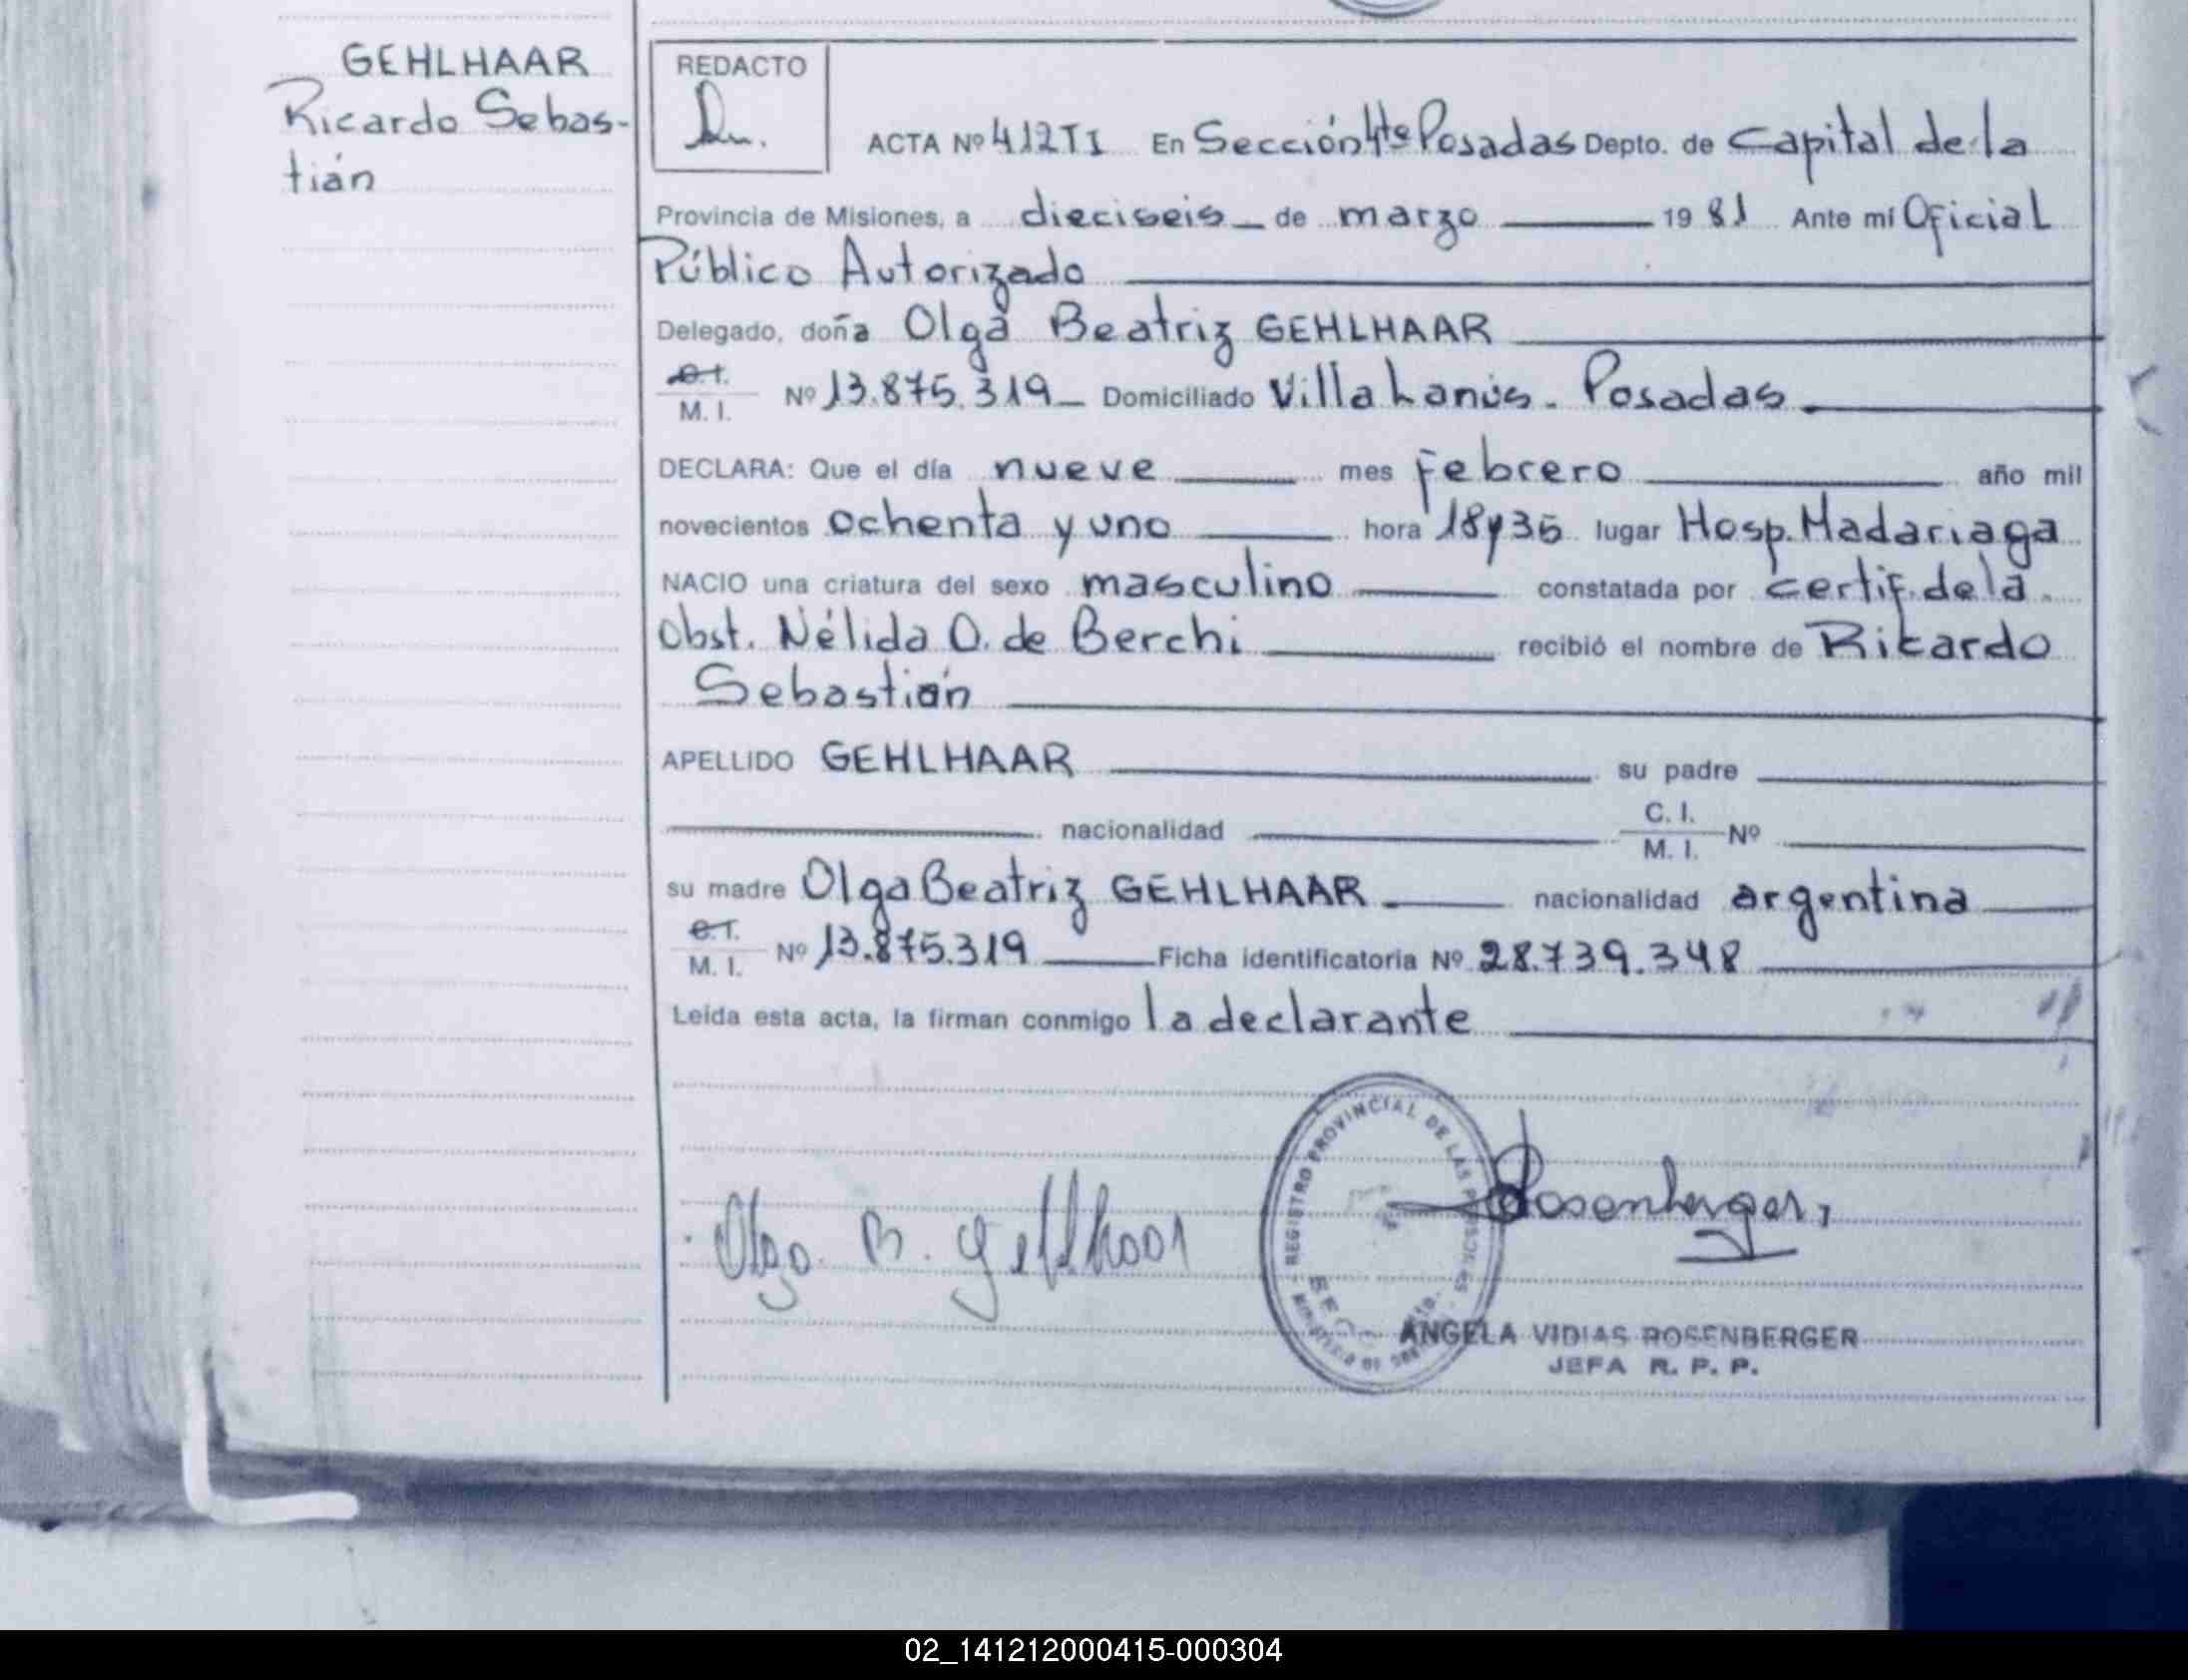 GEHLHAAR
Ricardo Sebas-
tián
REDACTO
ACTA Nº 412TI En Sección 4ta Posadas Depto. de Capital de la
Provincia de Misiones, a dieciseis de marzo 1981 Ante mí Oficial
Público Autorizado
Delegado, doña Olga Beatriz GEHLHAAR
C.I.
M. I. Nº 13.875.319 Domiciliado Villa Lanús - Posadas
DECLARA: Que el día nueve mes Febrero año mil
novecientos ochenta y uno hora 18y35 lugar Hosp. Madariaga
NACIO una criatura del sexo masculino constatada por certif. de la
Obst. Nélida O. de Berchi recibió el nombre de Ricardo
Sebastián
APELLIDO GEHLHAAR su padre
nacionalidad C. I.
M. I. Nº
su madre Olga Beatriz GEHLHAAR nacionalidad argentina
C.I.
M. I. Nº 13.875.319 Ficha identificatoria Nº 28.739.348
Leída esta acta, la firman conmigo la declarante
REGISTRO PROVINCIAL DE LAS PERSONAS
Olga B. Gehlhaar
Rosenberger
ANGELA VIDIAS ROSENBERGER
JEFA R. P. P.
02_141212000415-000304